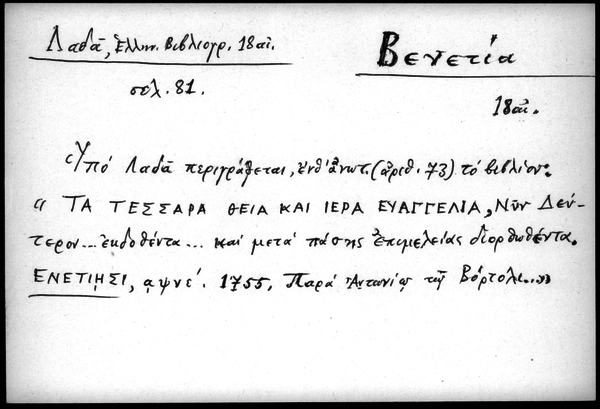 Λαδᾶ, Ἑλλην. Βιβλιογρ. 18 αἰ.
Βενετία
σελ. 81.
18 αἰ.
Ὑπό Λαδᾶ περιγράφεται, ἔνθ' ἀνωτ. (ἀριθ. 73) τό βιβλίον:
« ΤΑ ΤΕΣΣΑΡΑ ΘΕΙΑ ΚΑΙ ΙΕΡΑ ΕΥΑΓΓΕΛΙΑ, Νῦν Δεύ-
τερον... ἐκδοθέντα... καί μετά πάσης ἐπιμελείας διορθωθέντα.
ΕΝΕΤΙΗΣΙ, αψνε΄. 1755. Παρά Ἀντωνίῳ τῷ Βόρτολι...»